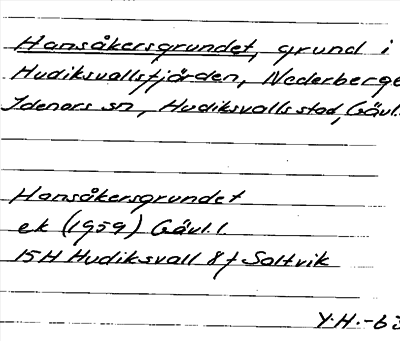 Hansåkersgrundet, grund i
Hudiksvallsfjärden, Nederberge
Idenors sn, Hudiksvalls stad, Gävl.
Hansåkersgrundet
ek (1959) Gävl.l.
15H Hudiksvall 8f Saltvik
Y.H.-63